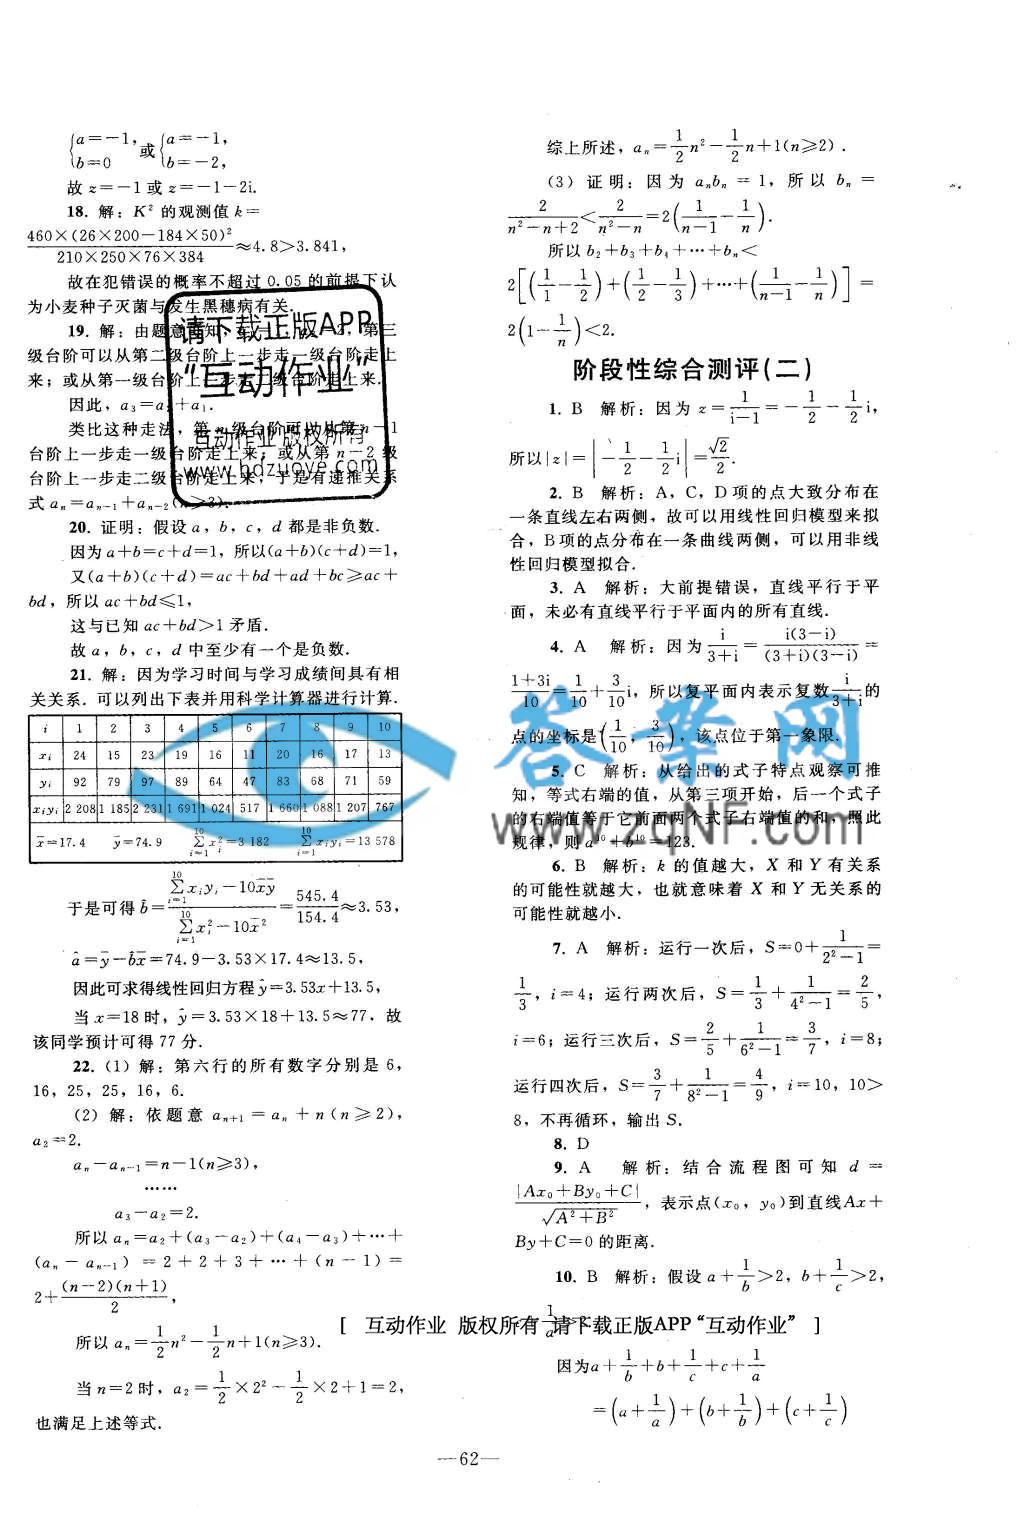 {a=-1, b=0 或 {a=-1, b=-2,
故 z=-1 或 z=-1-2i.
18. 解: K² 的观测值 k=
460×(26×200-184×50)²/210×250×76×384≈4.8>3.841,
故在犯错误的概率不超过 0.05 的前提下认
为小麦种子灭菌与发生黑穗病有关.
19. 解: 由题意 知, 第三
级台阶可以从第二级台阶上一步走一级台阶走上
来; 或从第一级台阶上一步走二级台阶走上来.
因此, a₃=a₂+a₁.
类比这种走法, 第 n 级台阶可以从第 n-1
台阶上一步走一级台阶走上来; 或从第 n-2 级
台阶上一步走二级台阶走上来, 于是有递推关系
式 aₙ=aₙ₋₁+aₙ₋₂(n≥3).
请下载正版APP
“互动作业”
互动作业 版权所有
www.hdzuoye.com
20. 证明: 假设 a, b, c, d 都是非负数.
因为 a+b=c+d=1, 所以(a+b)(c+d)=1,
又(a+b)(c+d)=ac+bd+ad+bc≥ac+
bd, 所以 ac+bd≤1,
这与已知 ac+bd>1 矛盾.
故 a, b, c, d 中至少有一个是负数.
21. 解: 因为学习时间与学习成绩间具有相
关关系. 可以列出下表并用科学计算器进行计算.
i 1 2 3 4 5 6 7 8 9 10
xᵢ 24 15 23 19 16 11 20 16 17 13
yᵢ 92 79 97 89 64 47 83 68 71 59
xᵢyᵢ 2 208 1 185 2 231 1 691 1 024 517 1 660 1 088 1 207 767
x̄=17.4 ȳ=74.9 ∑(i=1→10) xᵢ²=3 182 ∑(i=1→10) xᵢyᵢ=13 578
于是可得 b̂=(∑(i=1→10) xᵢyᵢ-10x̄ȳ)/(∑(i=1→10) xᵢ²-10x̄²)=545.4/154.4≈3.53,
â=ȳ-b̂x̄=74.9-3.53×17.4≈13.5,
因此可求得线性回归方程 ŷ=3.53x+13.5,
当 x=18 时, ŷ=3.53×18+13.5≈77, 故
该同学预计可得 77 分.
22. (1) 解: 第六行的所有数字分别是 6,
16, 25, 25, 16, 6.
(2) 解: 依题意 aₙ₊₁=aₙ+n(n≥2),
a₂=2.
aₙ-aₙ₋₁=n-1(n≥3),
……
a₃-a₂=2.
所以 aₙ=a₂+(a₃-a₂)+(a₄-a₃)+…+
(aₙ-aₙ₋₁)=2+2+3+…+(n-1)=
2+(n-2)(n+1)/2,
所以 aₙ=1/2n²-1/2n+1(n≥3).
当 n=2 时, a₂=1/2×2²-1/2×2+1=2,
也满足上述等式.
综上所述, aₙ=1/2n²-1/2n+1(n≥2).
(3) 证明: 因为 aₙbₙ=1, 所以 bₙ=
2/(n²-n+2)<2/(n²-n)=2(1/(n-1)-1/n).
所以 b₂+b₃+b₄+…+bₙ<
2[(1/1-1/2)+(1/2-1/3)+…+(1/(n-1)-1/n)]=
2(1-1/n)<2.
阶段性综合测评(二)
1. B 解析: 因为 z=1/(i-1)=-1/2-1/2i,
所以|z|=|-1/2-1/2i|=√2/2.
2. B 解析: A, C, D 项的点大致分布在
一条直线左右两侧, 故可以用线性回归模型来拟
合, B项的点分布在一条曲线两侧, 可以用非线
性回归模型拟合.
3. A 解析: 大前提错误, 直线平行于平
面, 未必有直线平行于平面内的所有直线.
4. A 解析: 因为 i/(3+i)=i(3-i)/((3+i)(3-i))=
(1+3i)/10=1/10+3/10i, 所以复平面内表示复数 i/(3+i) 的
点的坐标是(1/10, 3/10), 该点位于第一象限.
5. C 解析: 从给出的式子特点观察可推
知, 等式右端的值, 从第三项开始, 后一个式子
的右端值等于它前面两个式子右端值的和, 照此
规律, 则 a¹⁰+b¹⁰=123.
6. B 解析: k 的值越大, X 和 Y 有关系
的可能性就越大, 也就意味着 X 和 Y 无关系的
可能性就越小.
7. A 解析: 运行一次后, S=0+1/(2²-1)=
1/3, i=4; 运行两次后, S=1/3+1/(4²-1)=2/5,
i=6; 运行三次后, S=2/5+1/(6²-1)=3/7, i=8;
运行四次后, S=3/7+1/(8²-1)=4/9, i=10, 10>
8, 不再循环, 输出 S.
8. D
9. A 解析: 结合流程图可知 d=
|Ax₀+By₀+C|/√(A²+B²), 表示点(x₀, y₀)到直线Ax+
By+C=0 的距离.
10. B 解析: 假设 a+1/b>2, b+1/c>2,
c+1/a>2,
因为a+1/b+b+1/c+c+1/a
=(a+1/a)+(b+1/b)+(c+1/c)
答案网
www.1qNF.com
[ 互动作业 版权所有 请下载正版APP“互动作业” ]
—62—